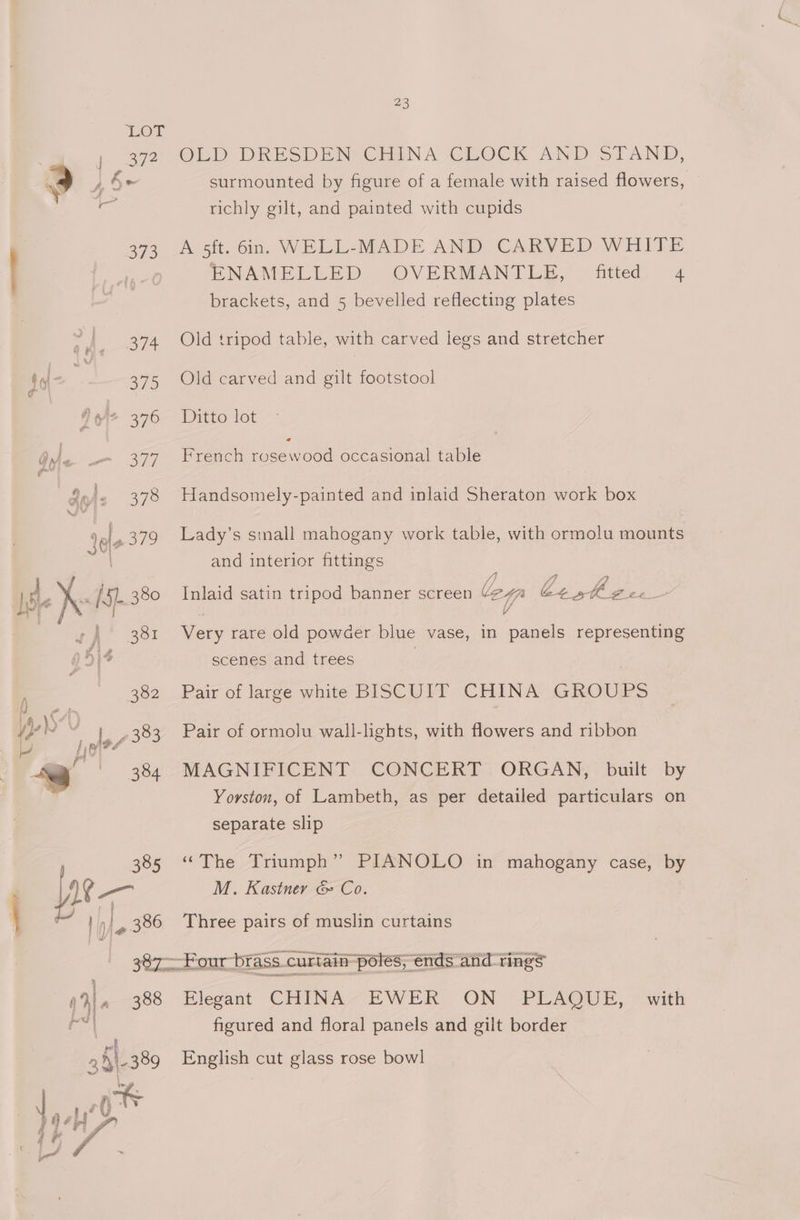 23
LOT
372 OLD DRESDEN CHINA CLOCK AND STAND,
surmounted by figure of a female with raised flowers,
richly gilt, and painted with cupids
373 A 5ft. 6in. WELL-MADE AND CARVED WHITE
ENAMELLED OVERMANTLE, fitted 4
brackets, and 5 bevelled reflecting plates
374 Old tripod table, with carved legs and stretcher
375 Old carved and gilt footstool
376 Ditto lot
377 French rosewood occasional table
378 Handsomely-painted and inlaid Sheraton work box
379 Lady's small mahogany work table, with ormolu mounts
and interior fittings
380 Inlaid satin tripod banner screen
381 Very rare old powder blue vase, in panels representing
scenes and trees
382 Pair of large white BISCUIT CHINA GROUPS
383 Pair of ormolu wall-lights, with flowers and ribbon
384 MAGNIFICENT CONCERT ORGAN, built by
Yorston, of Lambeth, as per detailed particulars on
separate slip
385 “The Triumph” PIANOLO in mahogany case, by
M. Kastner & Co.
386 Three pairs of muslin curtains
387 Four brass curtain poles, ends and rings
388 Elegant CHINA EWER ON PLAQUE, with
figured and floral panels and gilt border
389 English cut glass rose bowl